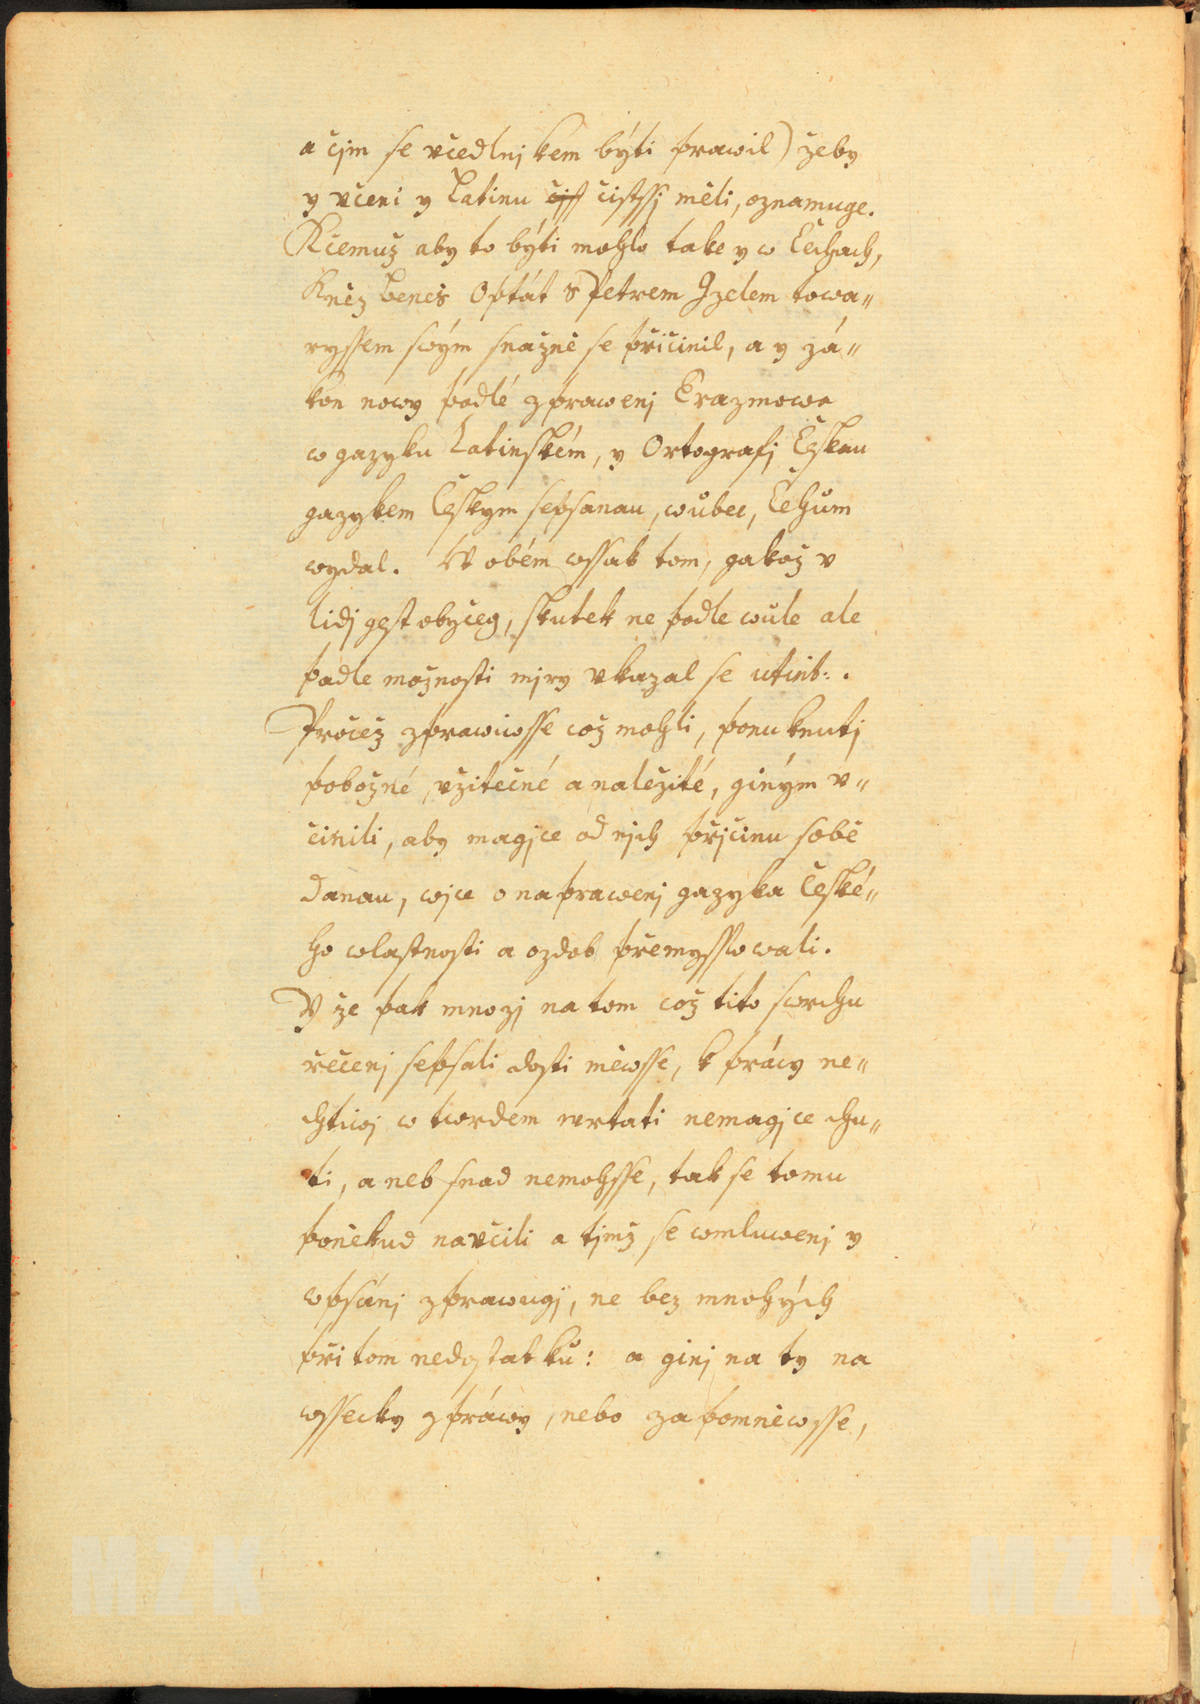 a čjm se včedlnjkem býti prawil) žeby
y včeni y Latinu čist čistssj měli, oznamuge.
Kčemuž aby to býti mohlo take y w Čechach,
Kněz Beneš Optát s Petrem Gzelem towa„
ryssem swým snažně se přičinil, a y zá„
kon nowy podlé zprawenj Erazmowa
w gazyku Latinském, y Ortografj Českau
gazykem Českym sepsanau, wůbec, Čechům
wydal. W obém wssak tom, gakož v
lidj gest obyčeg, skutek ne podle wůle ale
podle možnosti mjry vkazal se
Pročež zprawiwsse což mohli, ponuknutj
pobožné, vžitečné a naležité, giným v„
činili, aby magjce od njch přjčinu sobě
danau, wjce o naprawenj gazyka České„
ho wlastnosti a ozdob přemysslowali.
Y že pak mnozj na tom což tito swrchu
řečenj sepsali dosti měwsse, k prácy ne„
chtiwj w twrdem wrtati nemagjce chu„
ti, aneb snad nemohsse, tak se tomu
poněkud navčili a tjmž se wmluwenj y
wpsánj zprawugj, ne bez mnohých
při tom nedostatků: a ginj na ty na
wssecky zpráwy, nebo zapomněwsse,
MZK
MZK